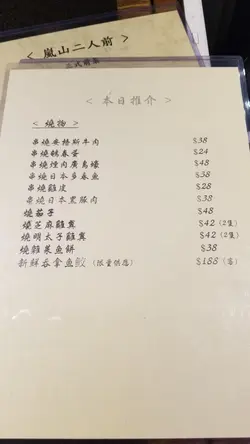 < 嵐山二人前 >
< 本日推介 >
< 燒物 >
串燒安格斯牛肉 $38
串燒鵪春蛋 $24
串燒煙肉廣島蠔 $48
串燒日本多春魚 $38
串燒雞皮 $28
串燒日本黑豚肉 $38
燒茄子 $48
燒芝麻雞翼 $42 (2隻)
燒明太子雞翼 $42 (2隻)
燒雜菜魚餅 $38
新鮮吞拿魚鮫 (限量供應) $188 (客)